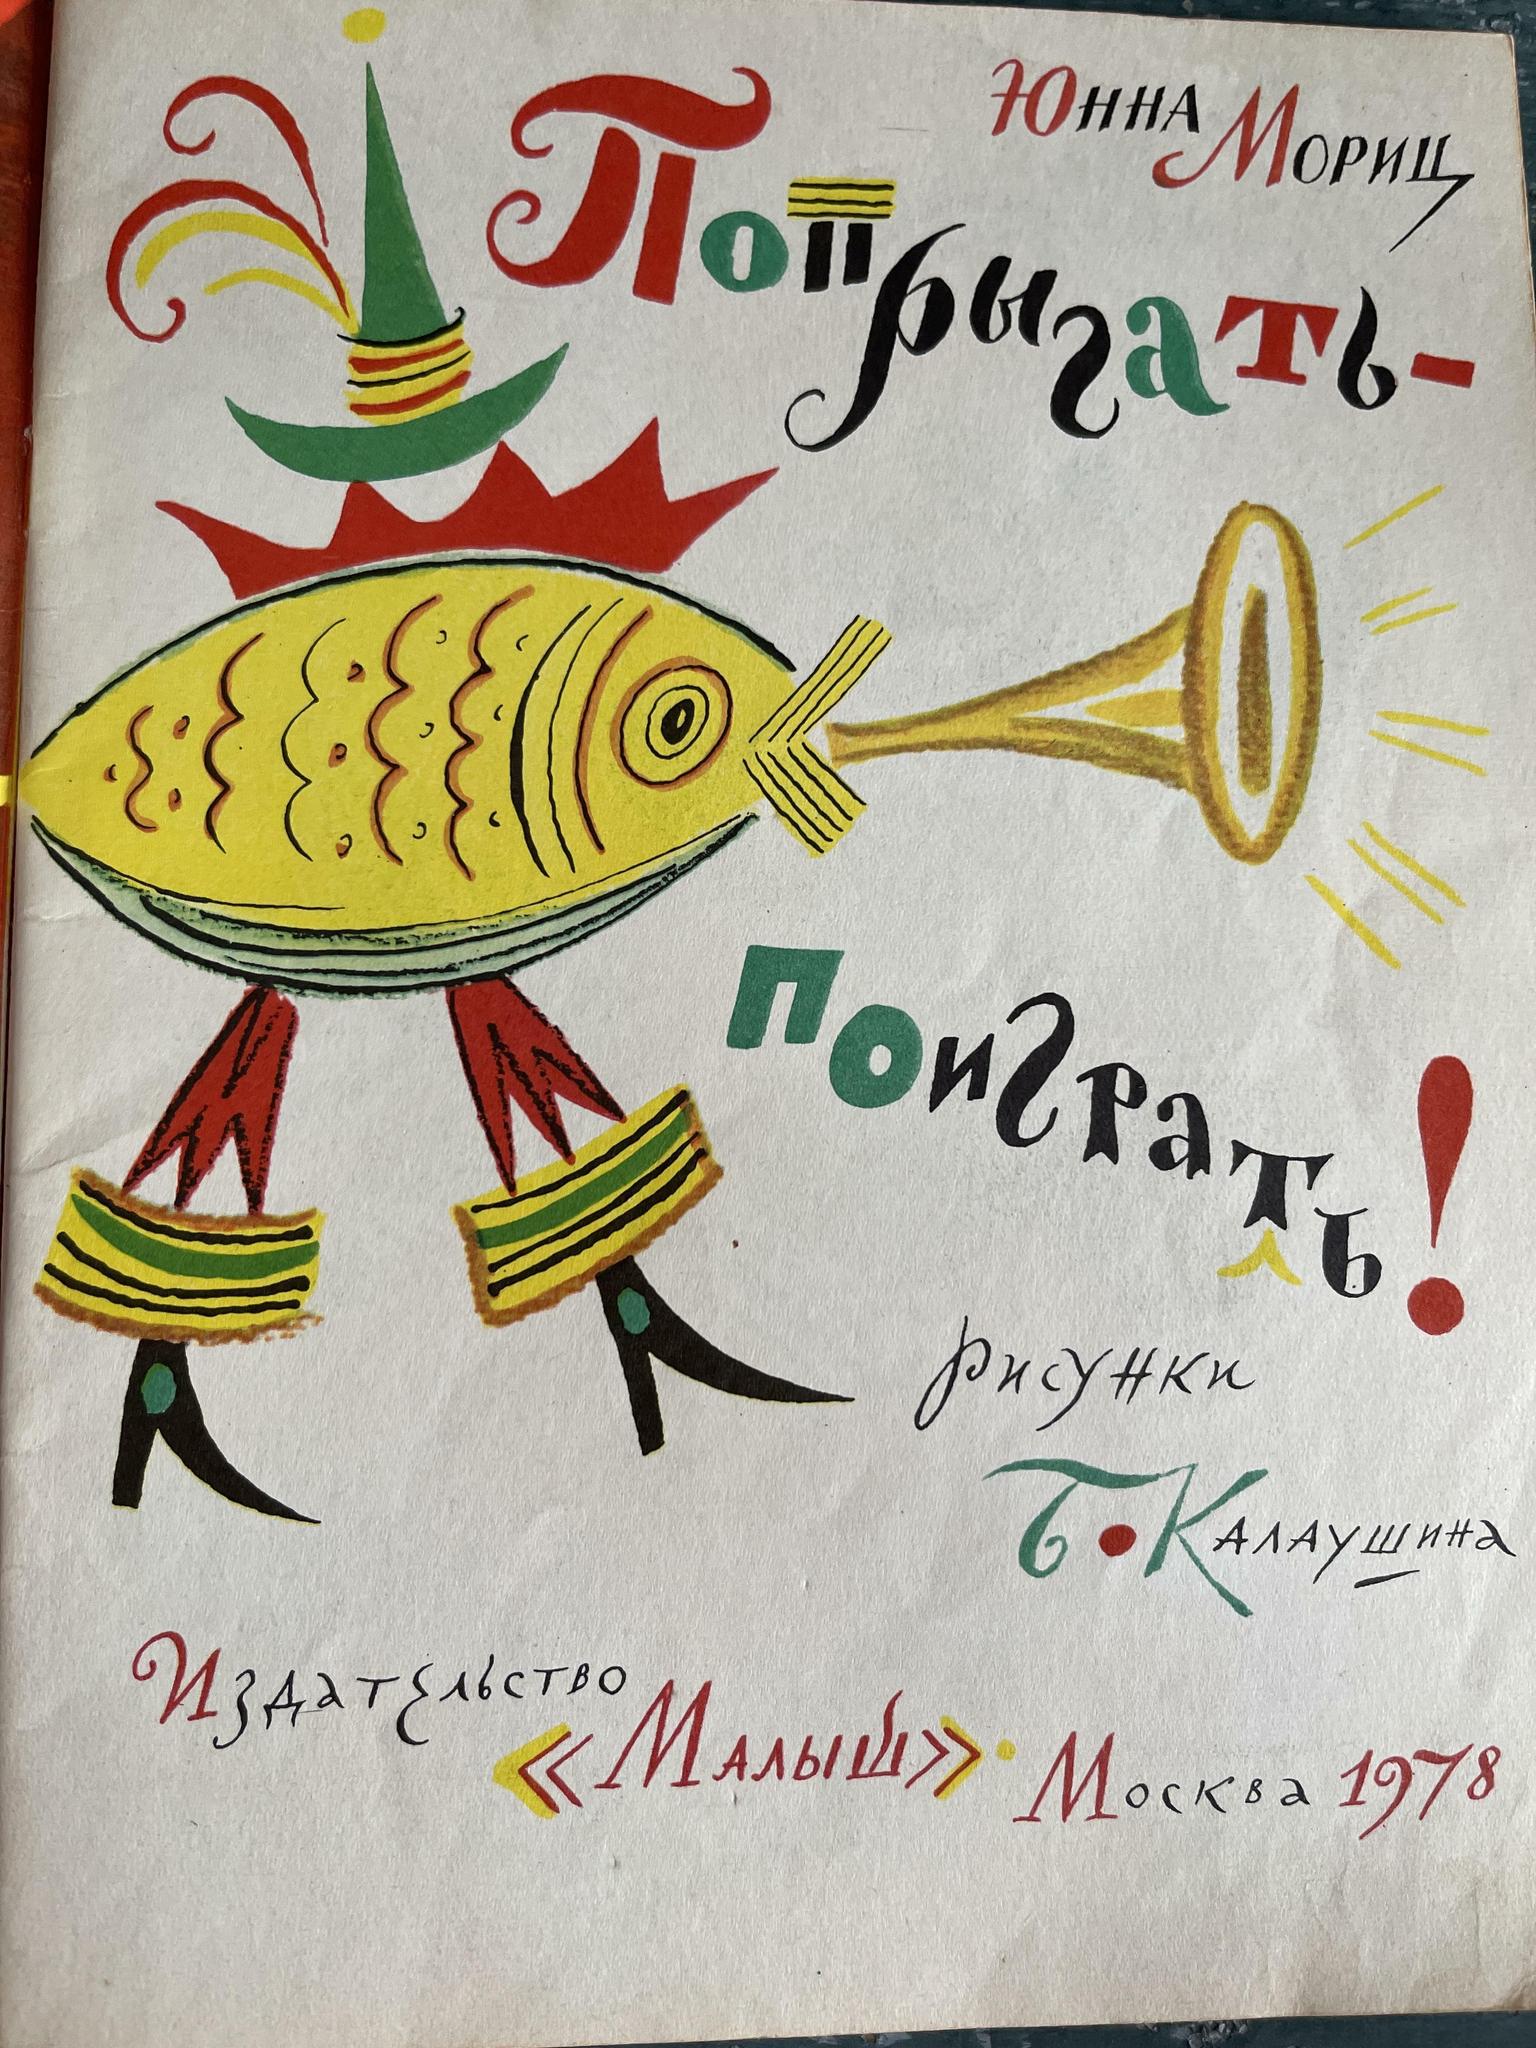 Юнна Мориц
Попрыгать-
поиграть!
рисунки
Б. Калаушина
Издательство
«Малыш» · Москва 1978